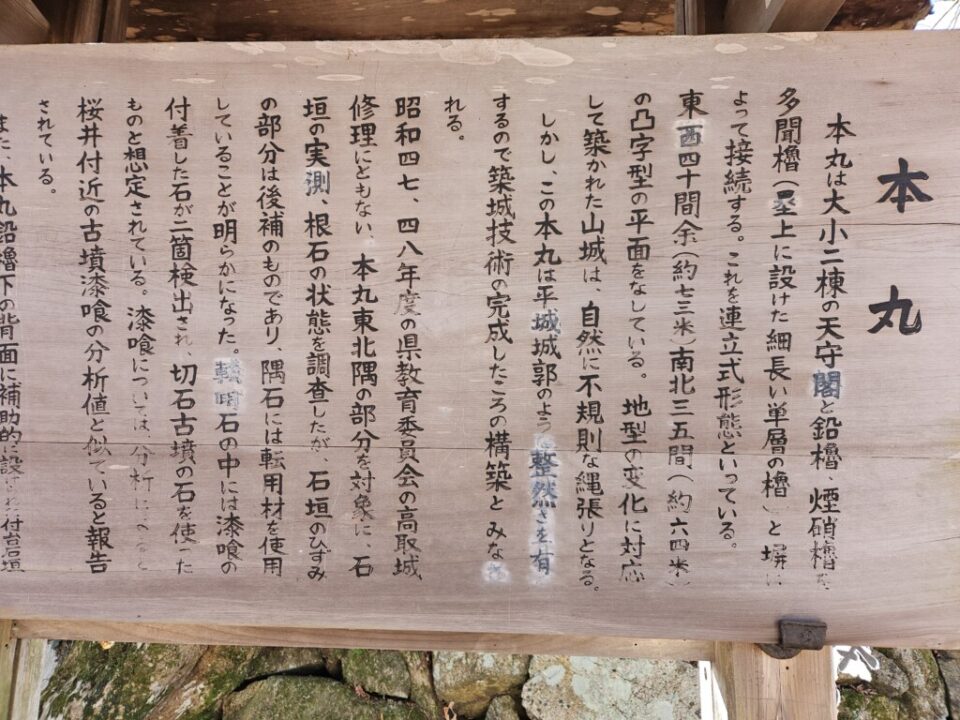 本丸
本丸は大小二棟の天守閣と鉛櫓、煙硝櫓を
多聞櫓(塁上に設けた細長い単層の櫓)と塀に
よって接続する。これを連立式形態といっている。
東西四十間余(約七三米)南北三五間(約六四米)
の凸字型の平面をなしている。地型の変化に対応
して築かれた山城は、自然に不規則な縄張りとなる。
しかし、この本丸は平城城郭のような整然さを有
するので築城技術の完成したころの構築とみなさ
れる。
昭和四七、四八年度の県教育委員会の高取城
修理にともない、本丸東北隅の部分を対象に、石
垣の実測、根石の状態を調査したが、石垣のひずみ
の部分は後補のものであり、隅石には転用材を使用
していることが明らかになった。転用石の中には漆喰の
付着した石が二箇検出され、切石古墳の石を使った
ものと想定されている。漆喰については、分析によると
桜井付近の古墳漆喰の分析値と似ていると報告
されている。
また、本丸鉛櫓下の背面に補助的に設けた付台石垣